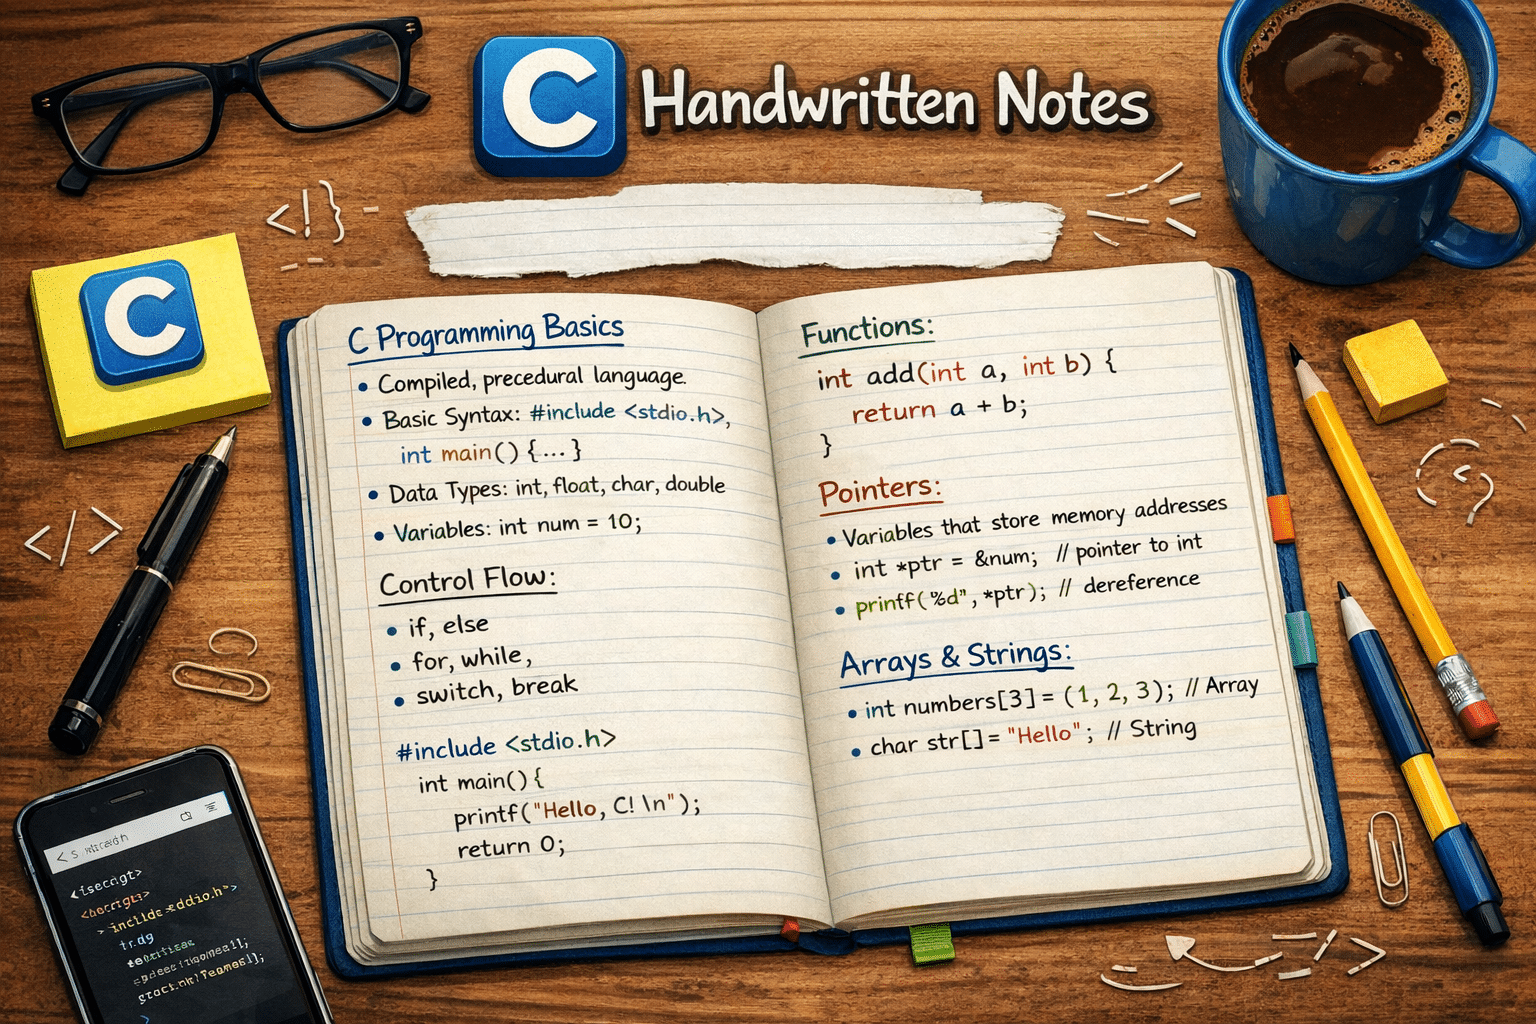 C Handwritten Notes
<!}
C
</>
C Programming Basics
• Compiled, precedural language.
• Basic Syntax: #include <stdio.h>,
int main() {...}
• Data Types: int, float, char, double
• Variables: int num = 10;
Control Flow:
• if, else
• for, while,
• switch, break
#include <stdio.h>
int main() {
printf("Hello, C! \n");
return 0;
}
Functions:
int add(int a, int b) {
return a + b;
}
Pointers:
• Variables that store memory addresses
• int *ptr = &num; // pointer to int
• printf("%d", *ptr); // dereference
Arrays & Strings:
• int numbers[3] = (1, 2, 3); // Array
• char str[] = "Hello"; // String